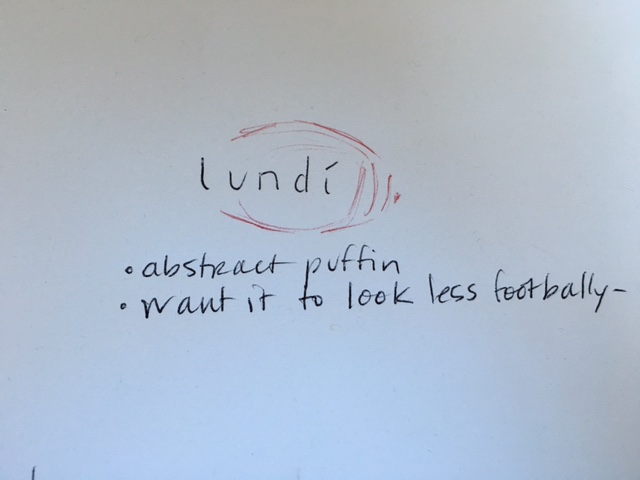 lundí
• abstract puffin
• want it to look less footbally-